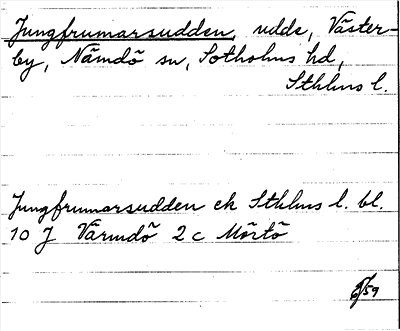 Jungfrumarsudden, udde, Väster-
by, Nämdö sn, Sotholms hd,
Sthlms l.
Jungfrumarsudden ek Sthlms l. bl.
10 J Värmdö 2c Mörtö
/59